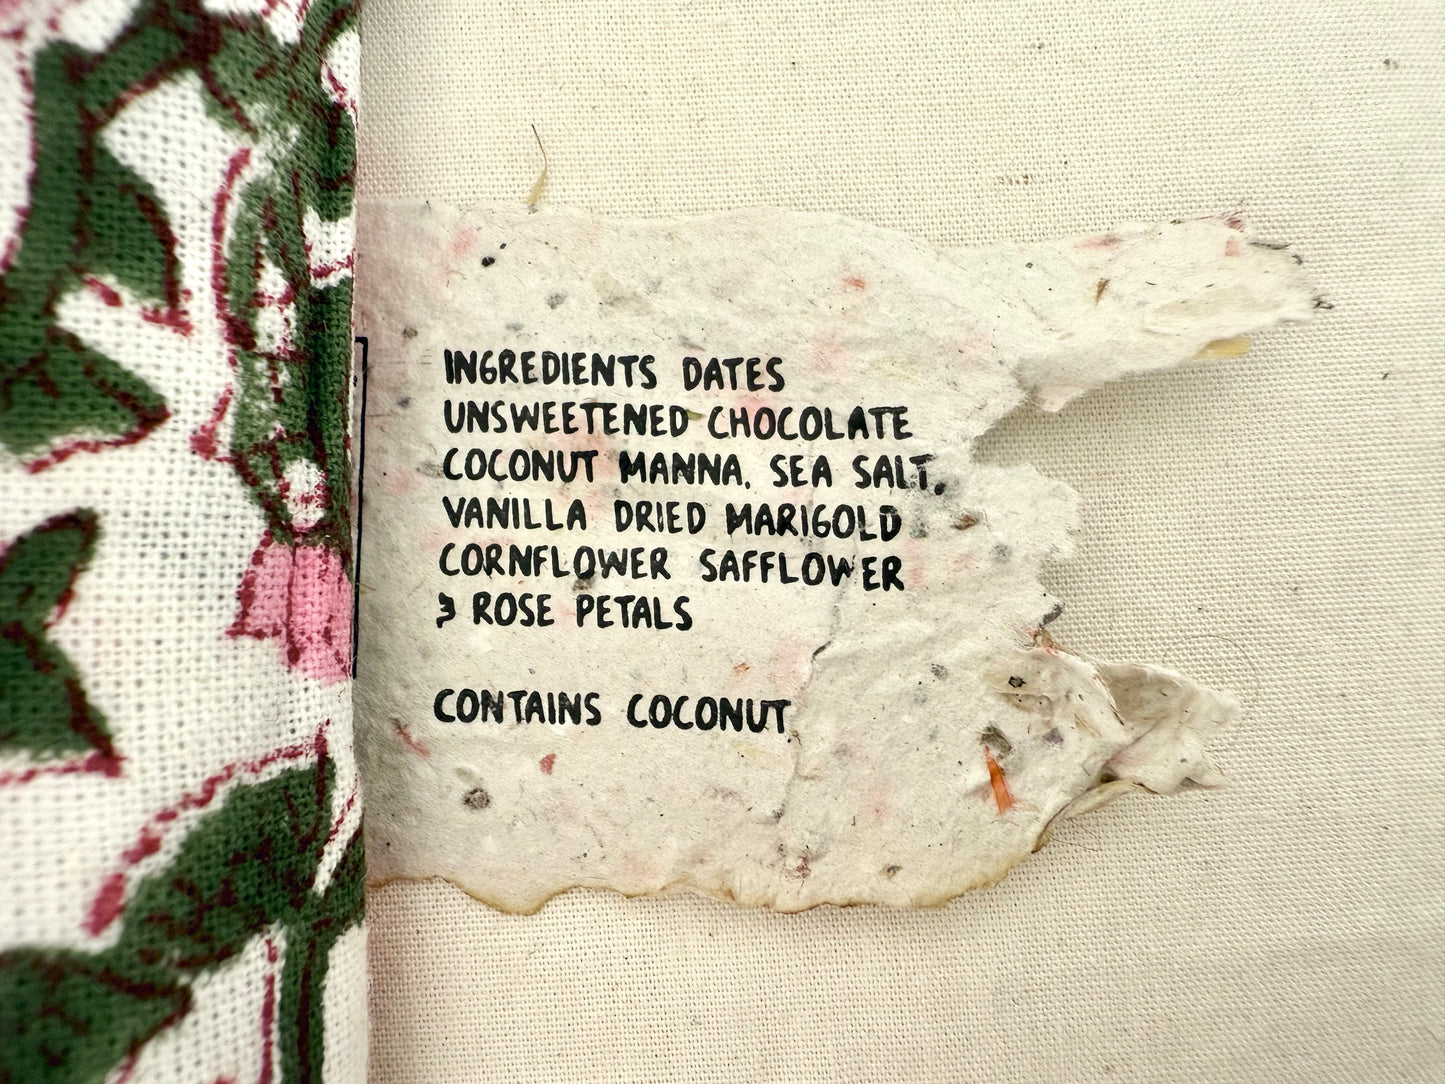 INGREDIENTS DATES
UNSWEETENED CHOCOLATE
COCONUT MANNA. SEA SALT,
VANILLA DRIED MARIGOLD
CORNFLOWER SAFFLOWER
& ROSE PETALS
CONTAINS COCONUT